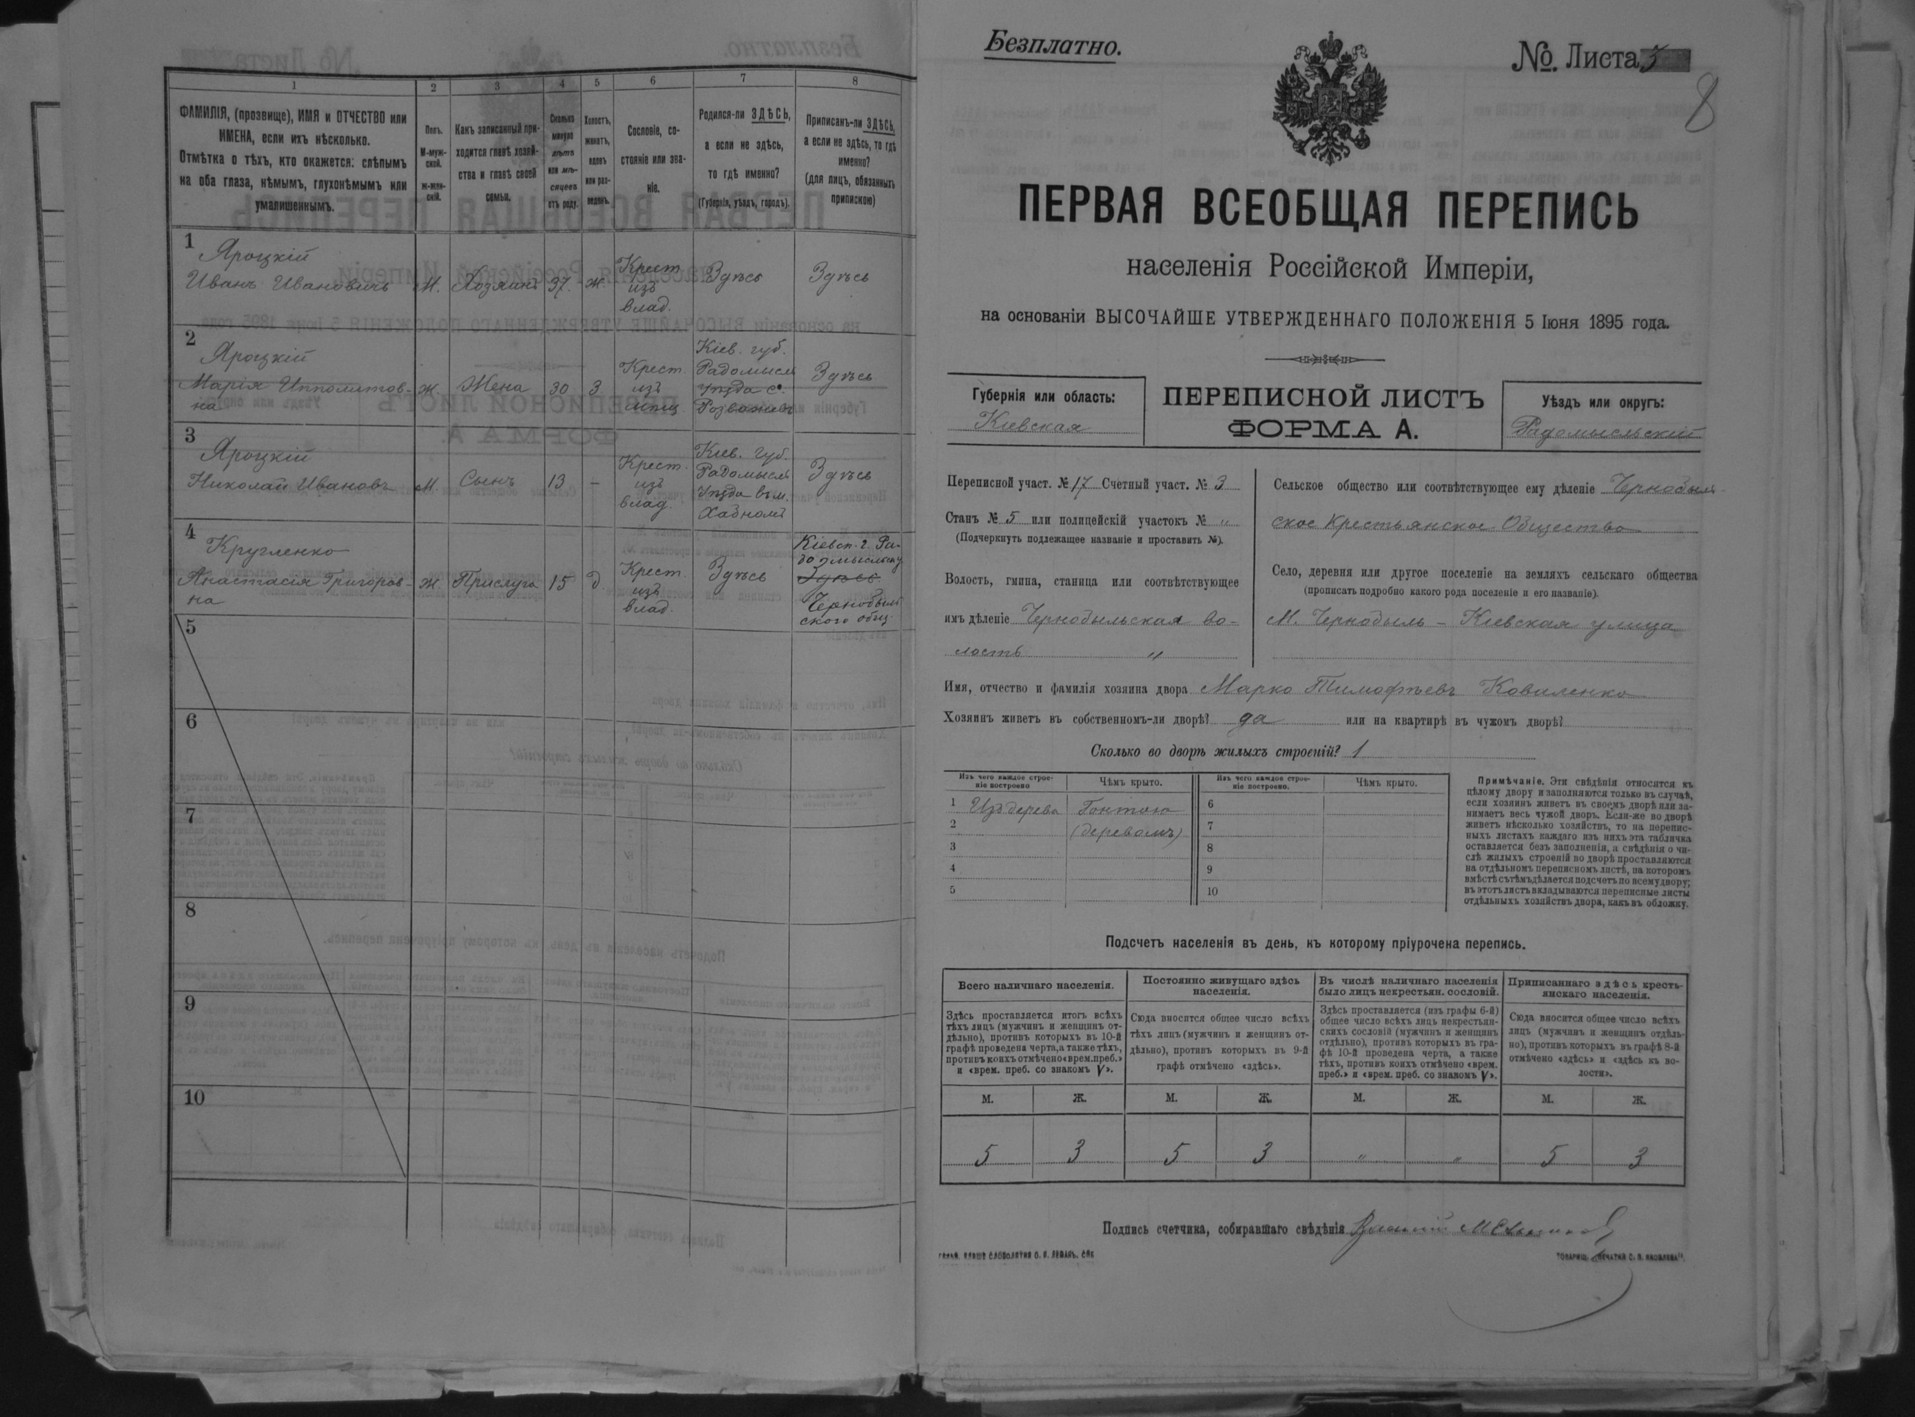 1
2
3
4
5
6
7
8
ФАМИЛІЯ, (прозвище), ИМЯ и ОТЧЕСТВО или
ИМЕНА, если ихъ нѣсколько.
Отмѣтка о тѣхъ, кто окажется: слѣпымъ
на оба глаза, нѣмымъ, глухонѣмымъ или
умалишеннымъ.
Полъ.
М-муж-
ской.
ж-жен-
скій.
Какъ записанный при-
ходится главѣ хозяй-
ства и главѣ своей
семьи.
Сколько
минуло
лѣтъ
или мѣ-
сяцевъ
отъ роду.
Холостъ,
женатъ,
вдовъ
или раз-
веденъ.
Сословіе, со-
стояніе или зва-
ніе.
Родился-ли ЗДѢСЬ,
а если не здѣсь,
то гдѣ именно?
(Губернія, уѣздъ, городъ).
Приписанъ-ли ЗДѢСЬ,
а если не здѣсь, то гдѣ
именно?
(для лицъ, обязанныхъ
припискою)
1
Яроцкій
Иванъ Ивановичъ
М.
Хозяинъ
37.
ж.
Крест
изъ
влад.
Здѣсь
Здѣсь
2
Яроцкій
Марія Ипполитов-
на
Ж
Жена
30
З
Крест
изъ
Кіев. губ.
Радомысл
уѣзда с.
Здѣсь
3
Яроцкій
Николай Ивановъ
М.
Сынъ
13
-
Крест.
изъ
влад.
Кіев. губ.
Радомысл
уѣзда въ м.
Хабномъ
Здѣсь
4
Кругленко
Анастасія Григоров-
на
Ж
Прислуга
15
д
Крест.
изъ
влад.
Здѣсь
Кіевск. г. Ра-
домысл у
Здѣсь
Чернобыль
ского общ.
5
6
7
8
9
10
Безплатно.
№. Листа 3
8
ПЕРВАЯ ВСЕОБЩАЯ ПЕРЕПИСЬ
населенія Россійской Имперіи,
на основаніи ВЫСОЧАЙШЕ УТВЕРЖДЕННАГО ПОЛОЖЕНІЯ 5 Іюня 1895 года.
Губернія или область:
Кіевская
ПЕРЕПИСНОЙ ЛИСТЪ
ФОРМА А.
Уѣздъ или округъ:
Радомысльскій
Переписной участ. № 17 Счетный участ. № 3
Станъ № 5 или полицейскій участокъ № "
(Подчеркнуть подлежащее названіе и проставить №).
Волость, гмина, станица или соотвѣтствующее
имъ дѣленіе Чернобыльская во-
лость "
Сельское общество или соотвѣтствующее ему дѣленіе Чернобыль-
ское Крестьянское Общество
Село, деревня или другое поселеніе на земляхъ сельскаго общества
(прописать подробно какого рода поселеніе и его названіе).
М. Чернобыль - Кіевская улица
Имя, отчество и фамилія хозяина двора Марко Тимофѣевъ Коваленко
Хозяинъ живетъ въ собственномъ-ли дворѣ? да или на квартирѣ въ чужомъ дворѣ?
Сколько во дворѣ жилыхъ строеній? 1
Изъ чего каждое строе-
ніе построено
Чѣмъ крыто.
Изъ чего каждое строе-
ніе построено.
Чѣмъ крыто.
1 Изъ дерева Гонтою
2 (деревомъ)
3
4
5
6
7
8
9
10
Примѣчаніе. Эти свѣдѣнія относятся къ
цѣлому двору и заполняются только въ случаѣ,
если хозяинъ живетъ въ своемъ дворѣ или за-
нимаетъ весь чужой дворъ. Если-же во дворѣ
живетъ нѣсколько хозяйствъ, то на перепис-
ныхъ листахъ каждаго изъ нихъ эта табличка
оставляется безъ заполненія, а свѣдѣнія о чи-
слѣ жилыхъ строеній во дворѣ проставляются
на отдѣльномъ переписномъ листѣ, на которомъ
вмѣстѣ съ тѣмъ дѣлается подсчетъ по всему двору;
въ этотъ листъ вкладываются переписные листы
отдѣльныхъ хозяйствъ двора, какъ въ обложку.
Подсчетъ населенія въ день, къ которому пріурочена перепись.
Всего наличнаго населенія.
Постоянно живущаго здѣсь
населенія.
Въ числѣ наличнаго населенія
было лицъ некрестьян. сословій.
Приписаннаго здѣсь кресть-
янскаго населенія.
Здѣсь проставляется итогъ всѣхъ
тѣхъ лицъ (мужчинъ и женщинъ от-
дѣльно), противъ которыхъ въ 10-й
графѣ проведена черта, а также тѣхъ,
противъ коихъ отмѣчено «врем. преб.»
и «врем. преб. со знакомъ V».
Сюда вносится общее число всѣхъ
тѣхъ лицъ (мужчинъ и женщинъ от-
дѣльно), противъ которыхъ въ 9-й
графѣ отмѣчено «здѣсь».
Здѣсь проставляется (изъ графы 6-й)
общее число всѣхъ лицъ некрестьян-
скихъ сословій (мужчинъ и женщинъ
отдѣльно), противъ которыхъ въ гра-
фѣ 10-й проведена черта, а также
тѣхъ, противъ коихъ отмѣчено «врем.
преб.» и «врем. преб. со знакомъ V».
Сюда вносится общее число всѣхъ
лицъ (мужчинъ и женщинъ отдѣль-
но), противъ которыхъ въ графѣ 8-й
отмѣчено «здѣсь» и «здѣсь къ во-
лости».
М. Ж. М. Ж. М. Ж. М. Ж.
5 3 5 3 " " 5 3
Подпись счетчика, собиравшаго свѣдѣнія